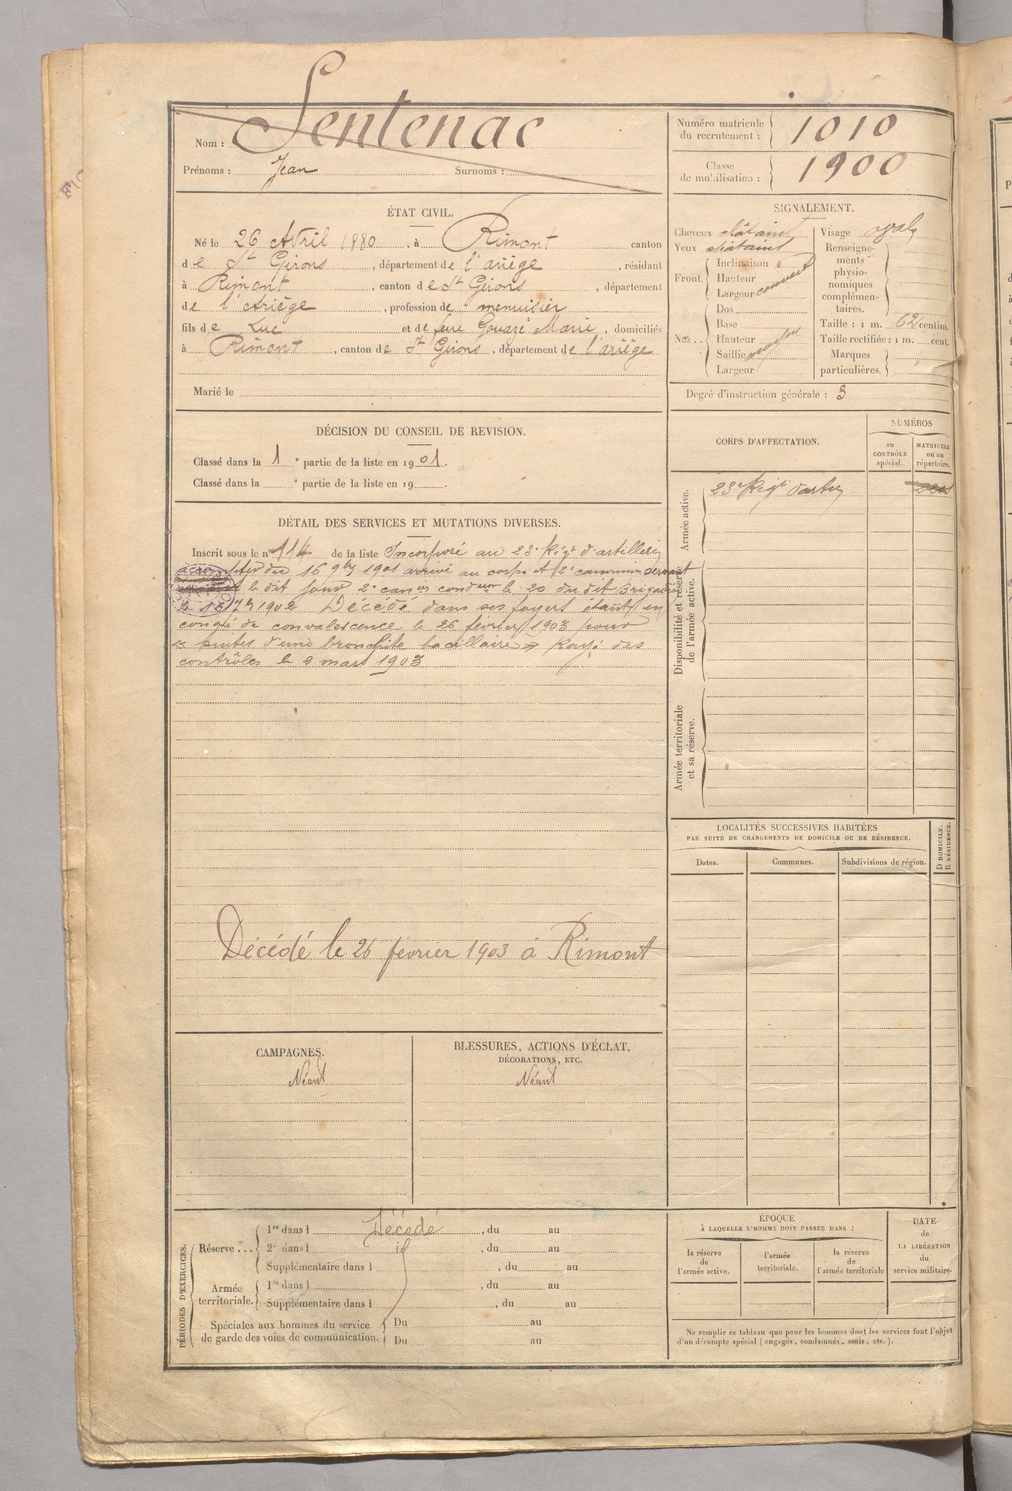 Nom : Sentenac
Prénoms : Jean Surnoms :
Numéro matricule du recrutement : 1010
Classe de mobilisation : 1900
ÉTAT CIVIL.
Né le 26 Avril 1880, à Rimont canton
de St Girons, département de l'ariège, résidant
à Rimont, canton de St Girons, département
de l'Ariège, profession de menuisier
fils de Luc et de feue Gouazé Marie, domiciliés
à Rimont, canton de St Girons, département de l'ariège
Marié le
SIGNALEMENT.
Cheveux châtains Visage ovale
Yeux châtains
Renseignements physionomiques complémentaires.
Front. Inclinaison
Hauteur
Largeur couvert
Nez... Dos
Base
Hauteur
Saillie moyen
Largeur
Taille : 1 m. 62 centim.
Taille rectifiée : 1 m. cent.
Marques particulières.
Degré d'instruction générale : 3
DÉCISION DU CONSEIL DE REVISION.
Classé dans la 1 e partie de la liste en 1901.
Classé dans la e partie de la liste en 19
CORPS D'AFFECTATION.
NUMÉROS
au CONTRÔLE spécial.
MATRICULE ou au répertoire.
Armée active.
23e Régt d'artie
Disponibilité et réserve de l'armée active.
Armée territoriale et sa réserve.
DÉTAIL DES SERVICES ET MUTATIONS DIVERSES.
Inscrit sous le n° 114 de la liste Incorporé au 23e Régt d'artillerie
à compter du 16 9bre 1901 arrivé au corps et 2e canonnier servant
le dit jour 2e canier condeur le 20 du dit Brigadier
1902 Décédé dans ses foyers étant en
congé de convalescence le 26 février 1903 pour
suites d'une bronchite bacillaire Rayé des
contrôles le 9 mars 1903
Décédé le 26 février 1903 à Rimont
LOCALITÉS SUCCESSIVES HABITÉES
PAR SUITE DE CHANGEMENTS DE DOMICILE OU DE RÉSIDENCE.
Dates. Communes. Subdivisions de région. D DOMICILE. R RÉSIDENCE.
CAMPAGNES.
Néant
BLESSURES, ACTIONS D'ÉCLAT,
DÉCORATIONS, ETC.
Néant
PÉRIODES D'EXERCICES.
Réserve... 1re dans l Décédé, du au
2e dans l, du au
Supplémentaire dans l, du au
Armée territoriale. 1re dans l, du au
Supplémentaire dans l, du au
Spéciales aux hommes du service de garde des voies de communication. Du au
Du au
ÉPOQUE
À LAQUELLE L'HOMME DOIT PASSER DANS :
la réserve de l'armée active.
l'armée territoriale.
la réserve de l'armée territoriale
DATE de LA LIBÉRATION du service militaire.
Ne remplir ce tableau que pour les hommes dont les services font l'objet
d'un décompte spécial (engagés, condamnés, omis, etc.).